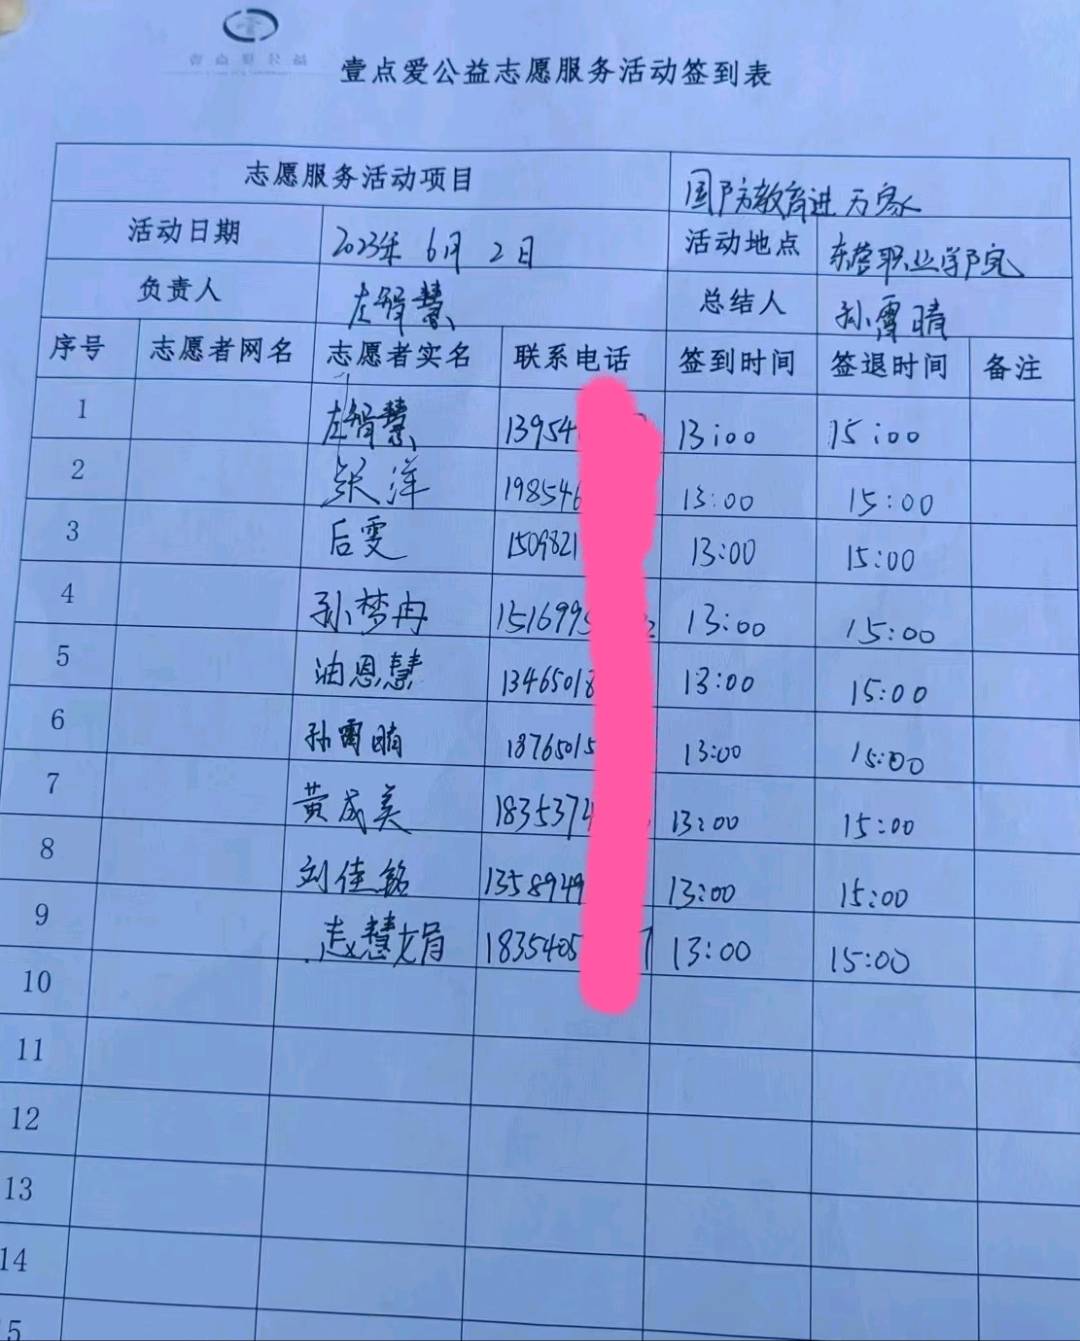 壹点爱公益
壹点爱公益志愿服务活动签到表
志愿服务活动项目 国防教育进万家
活动日期 2023年 6月 2日 活动地点 东营职业学院
负责人 左智慧 总结人 孙霄晴
序号 志愿者网名 志愿者实名 联系电话 签到时间 签退时间 备注
1 左智慧 13954 13:00 15:00
2 张洋 198546 13:00 15:00
3 后雯 1509821 13:00 15:00
4 孙梦冉 1516995 2 13:00 15:00
5 油恩慧 13465018 13:00 15:00
6 孙霄晴 18765015 13:00 15:00
7 黄成美 1835374 13:00 15:00
8 刘佳铭 1358949 13:00 15:00
9 赵慧娟 1835405 7 13:00 15:00
10
11
12
13
14
15